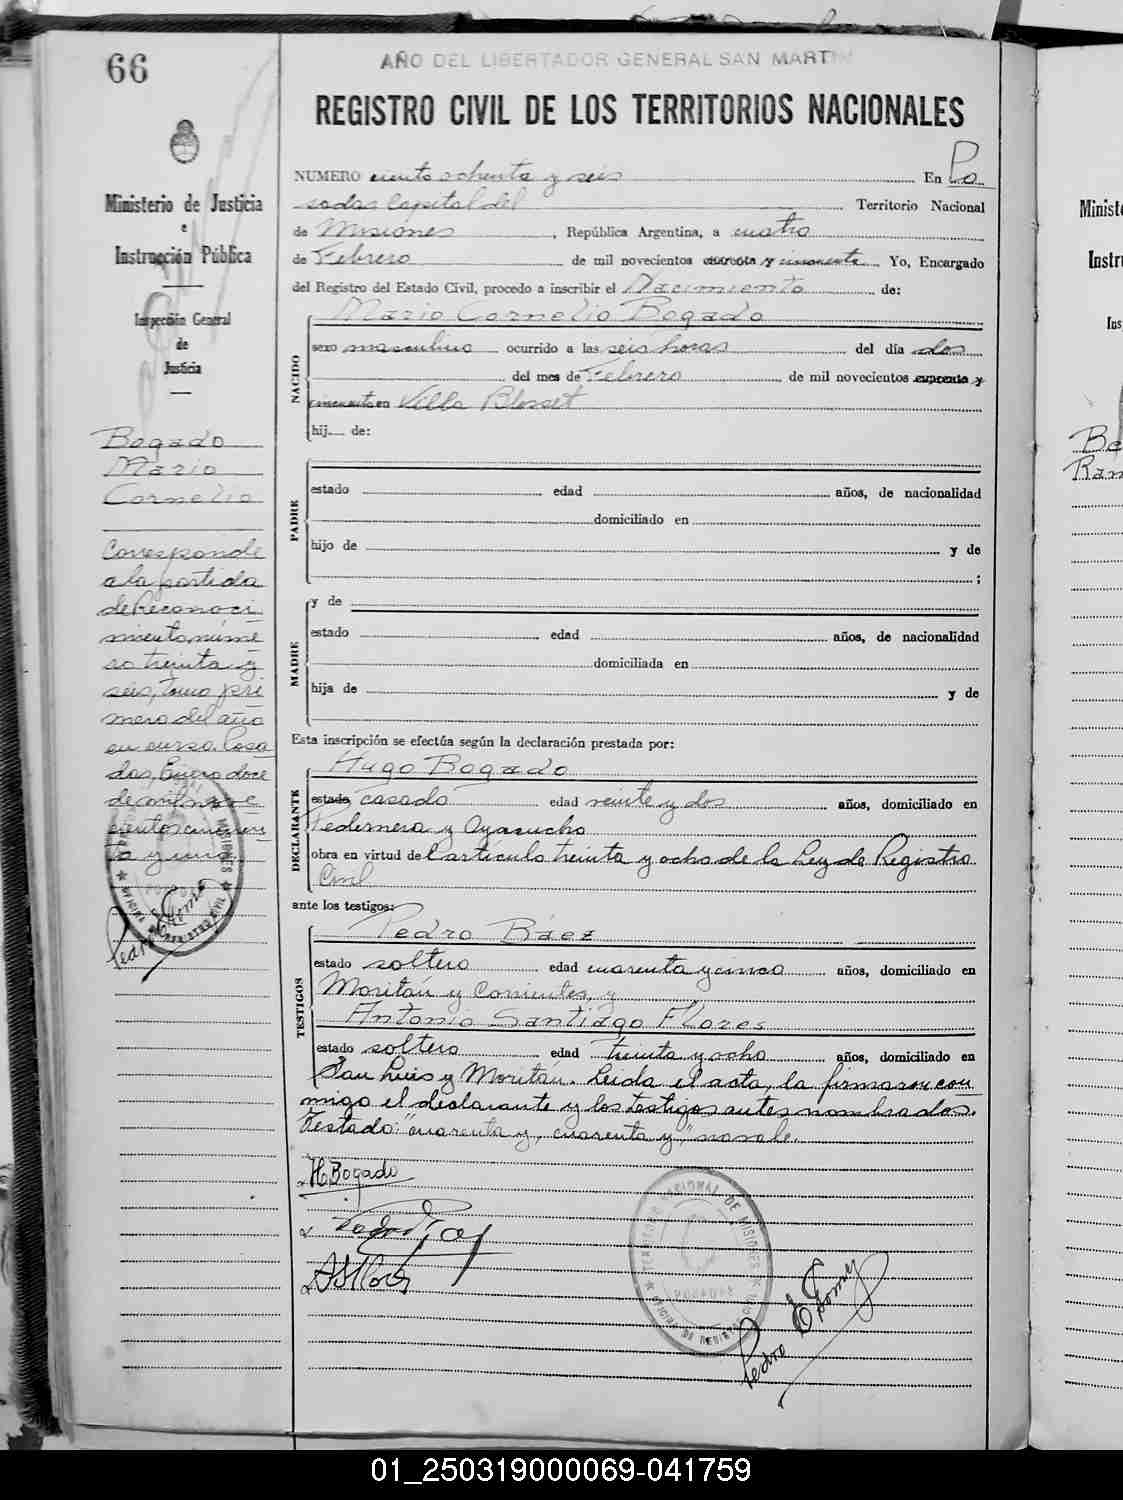 66
AÑO DEL LIBERTADOR GENERAL SAN MARTIN
REGISTRO CIVIL DE LOS TERRITORIOS NACIONALES
Ministerio de Justicia
e
Instrucción Pública
Inspección General
de
Justicia
Bogado
Mario
Cornelio
Corresponde
a la partida
de Reconoci
miento núme
ro treinta y
seis, tomo pri
mero del año
en curso. Posa
das, Enero doce
de mil nove
cientos cincuen
ta y uno
NUMERO ciento ochenta y seis En Po
sadas Capital del Territorio Nacional
de Misiones, República Argentina, a cuatro
de Febrero de mil novecientos cuarenta y cincuenta Yo, Encargado
del Registro del Estado Civil, procedo a inscribir el Nacimiento de:
NACIDO
Mario Cornelio Bogado
sexo masculino ocurrido a las seis horas del día dos
del mes de Febrero de mil novecientos cuarenta y
cincuenta en Villa Blosset
hij de:
PADRE
estado edad años, de nacionalidad
domiciliado en
hijo de y de
;
MADRE
y de
estado edad años, de nacionalidad
domiciliada en
hija de y de
Esta inscripción se efectúa según la declaración prestada por:
DECLARANTE
Hugo Bogado
estado casado edad veinte y dos años, domiciliado en
Pedernera y Ayacucho
obra en virtud del artículo treinta y ocho de la Ley de Registro
Civil
ante los testigos:
TESTIGOS
Pedro Báez
estado soltero edad cuarenta y cinco años, domiciliado en
Moritán y Corrientes, y
Antonio Santiago Flores
estado soltero edad treinta y ocho años, domiciliado en
San Luis y Moritán. Leida el acta, la firmaron con
migo el declarante y los testigos antes nombrados.
Testado: "cuarenta y, cuarenta y," no vale.
H. Bogado
TERRITORIO NACIONAL DE MISIONES
POSADAS
OFICINA DE REGISTRO CIVIL
01_250319000069-041759